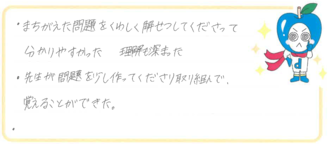 ・まちがえた問題をくわしく解せつしてくださって
分かりやすかった 理解も深まった
・先生が問題を少し作ってくださり取り組んで、
覚えることができた。
・
d